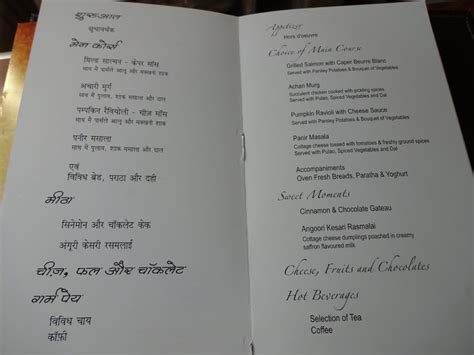 शुरूआत
क्षुधावर्धक
मेन कोर्स
ग्रिल्ड साल्मन - केपर सॉस
साथ में पार्सले आलू और मक्खनी शाक
अचारी मुर्ग
साथ में पुलाव, शाक मसाला और दाल
पम्पकिन रैवियोली - चीज़ सॉस
साथ में पार्सले आलू और मक्खनी शाक
पनीर मसाला
साथ में पुलाव, शाक मसाला और दाल
एवं
विविध ब्रेड, पराठा और दही
मीठा
सिनेमोन और चॉकलेट केक
अंगूरी केसरी रसमलाई
चीज़, फल और चॉकलेट
गर्म पेय
विविध चाय
कॉफ़ी
Appetizer
Hors d'oeuvre
Choice of Main Course
Grilled Salmon with Caper Beurre Blanc
Served with Parsley Potatoes & Bouquet of Vegetables
Achari Murg
Succulent chicken cooked with pickling spices
Served with Pulao, Spiced Vegetables and Dal
Pumpkin Ravioli with Cheese Sauce
Served with Parsley Potatoes & Bouquet of Vegetables
Panir Masala
Cottage cheese tossed with tomatoes & freshly ground spices
Served with Pulao, Spiced Vegetables and Dal
Accompaniments
Oven Fresh Breads, Paratha & Yoghurt
Sweet Moments
Cinnamon & Chocolate Gateau
Angoori Kesari Rasmalai
Cottage cheese dumplings poached in creamy
saffron flavoured milk
Cheese, Fruits and Chocolates
Hot Beverages
Selection of Tea
Coffee